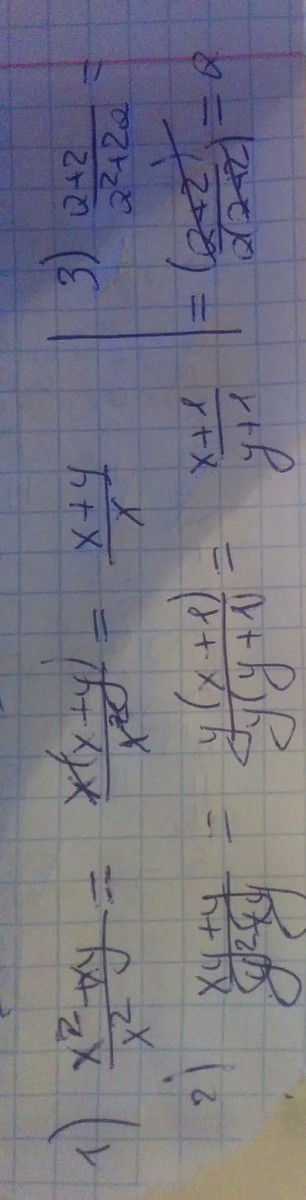 1) x²+xy/x² = x(x+y)/x² = x+y/x
2) xy+y/y²+y = y(x+1)/y(y+1) = x+1/y+1
3) a+2/a²+2a =
= (a+2)/a(a+2) = a